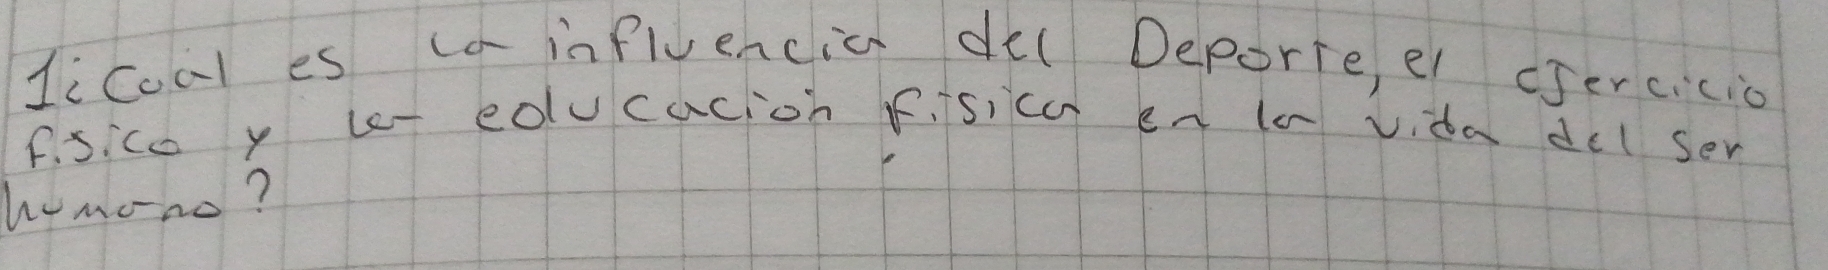 1¿Cual es la influencia del Deporte, el ejercicio
físico y la educación física en la vida del ser
humano?